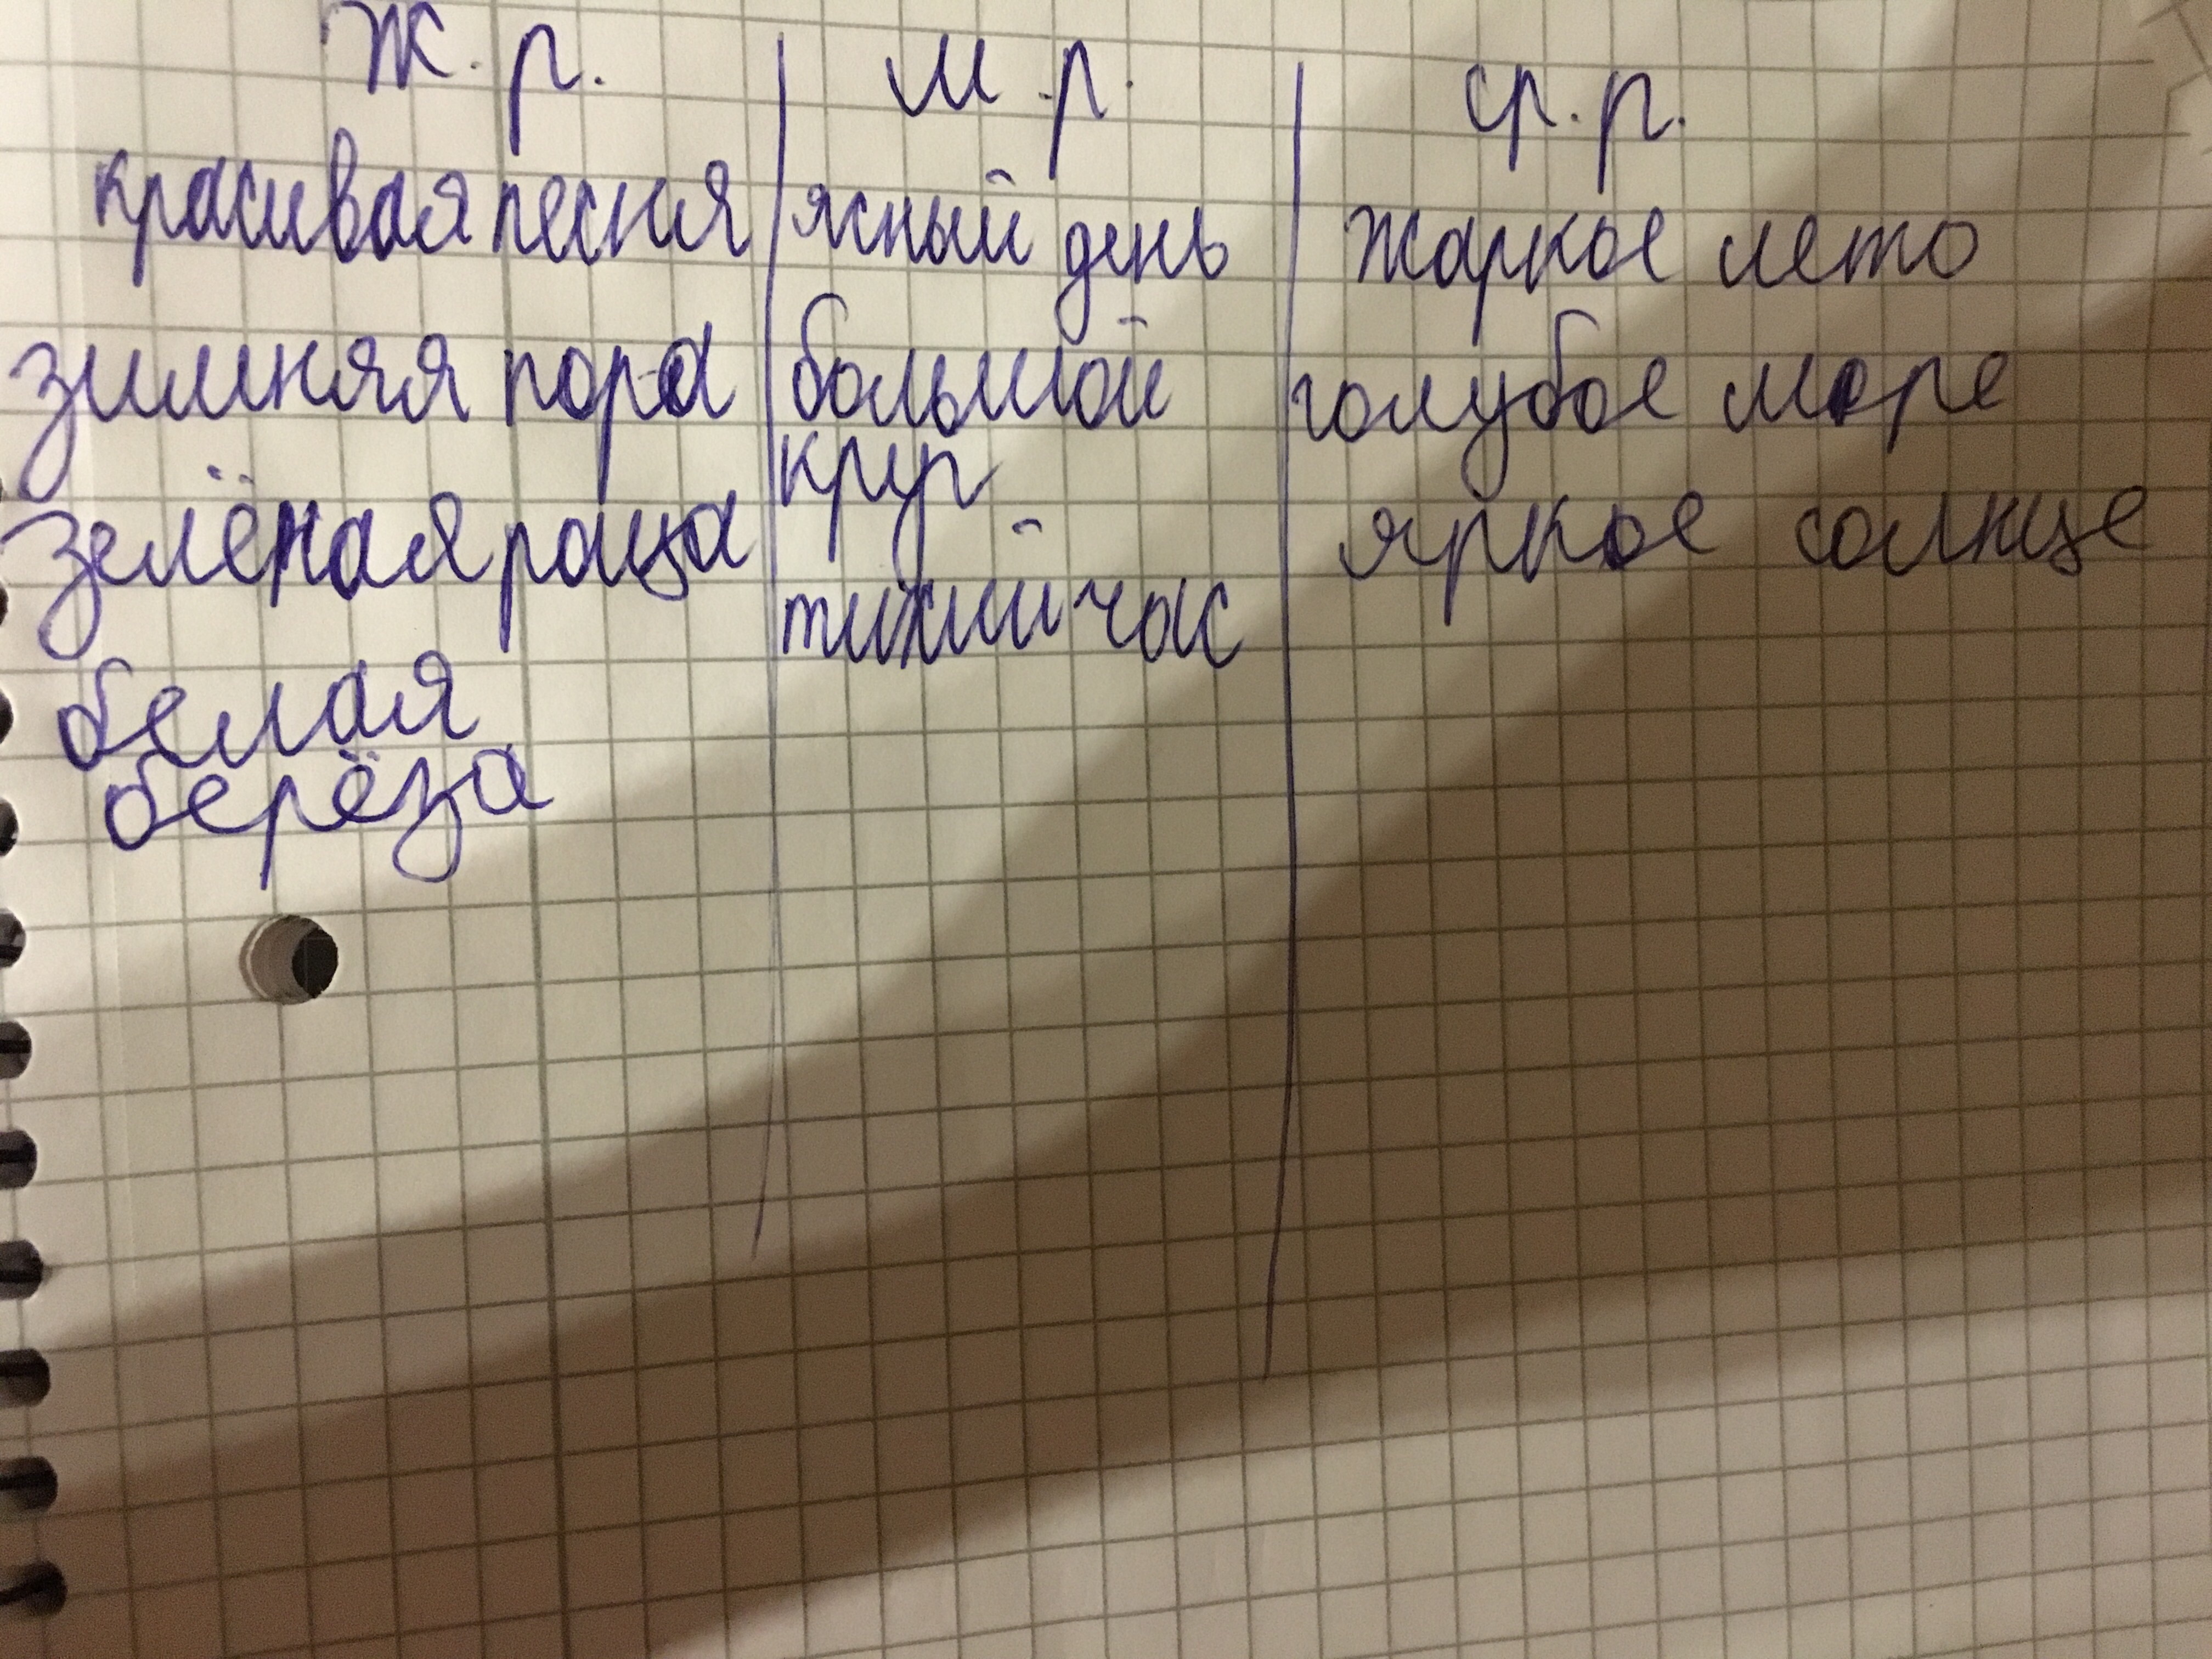 ж. р.
м. р.
ср. р.
красивая песня
ясный день
жаркое лето
зимняя пора
большой
круг
голубое море
зелёная роща
тихий час
яркое солнце
белая
берёза